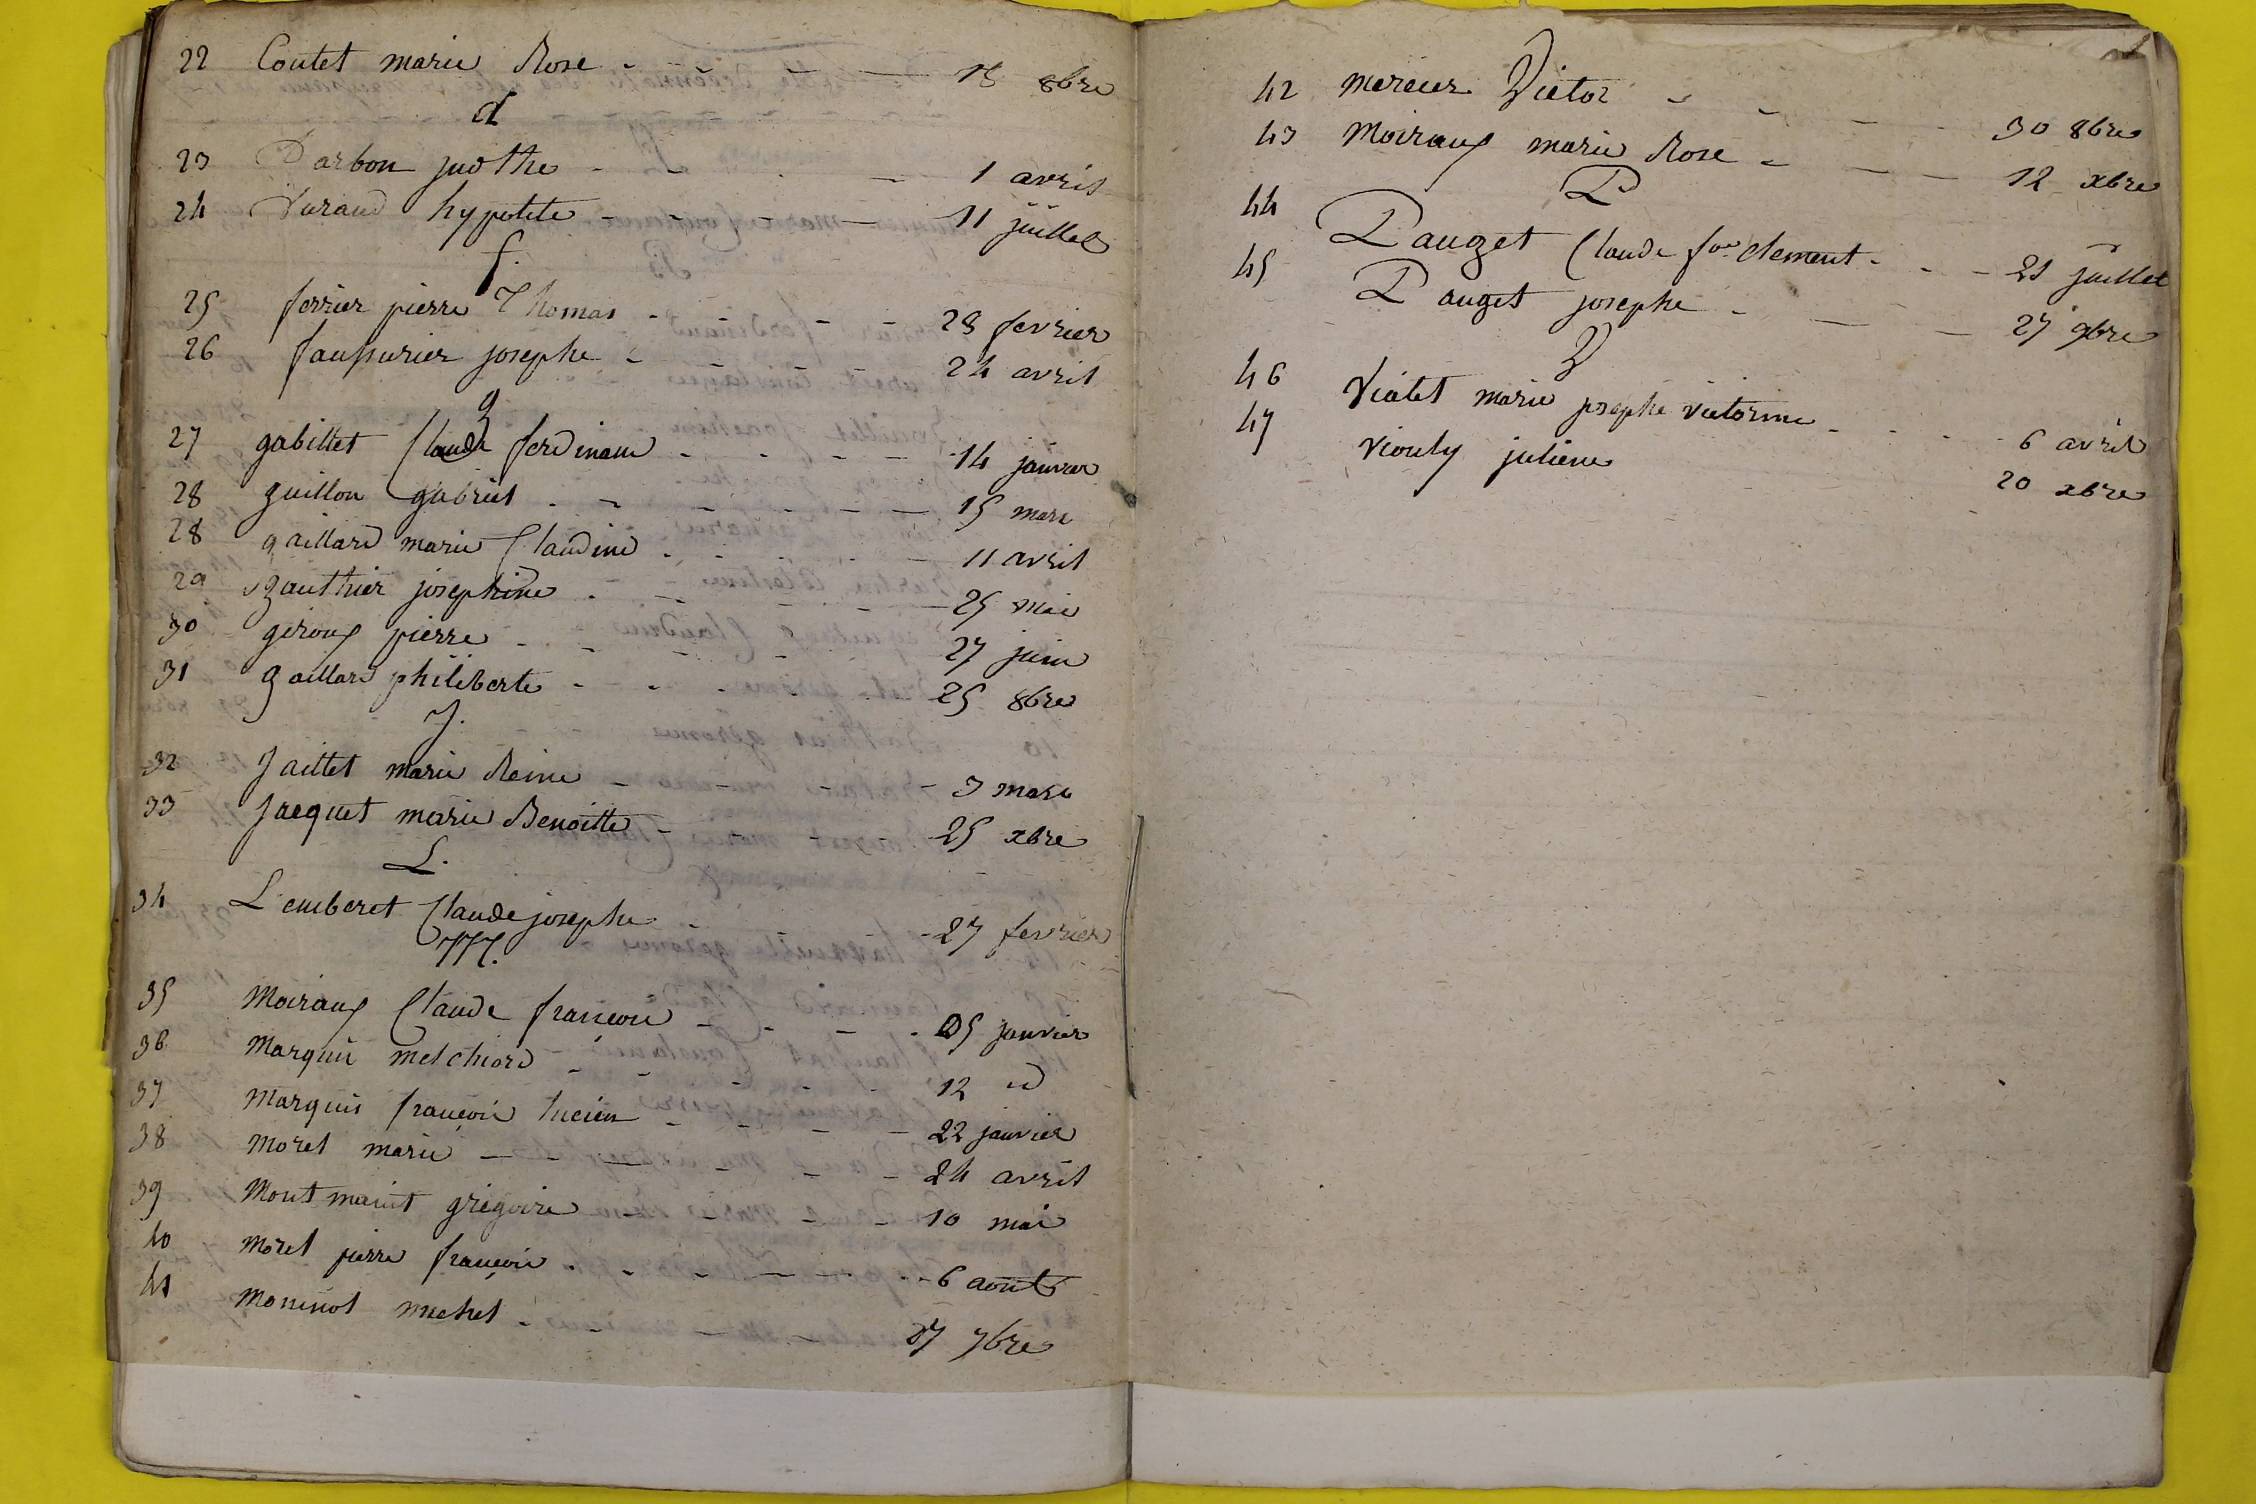 22 Coutet marie Rose - - - - 13 8bre
d
23 Darbon judthe - - - - 1 avril
24 Durand hypolite - - - - 11 juillet
f.
25 ferrier pierre Thomas - - - - 28 fevrier
26 faussurier josephe - - - 24 avril
g
27 gabillet Claude ferdinand - - - - 14 janvier
28 guillon gabriel - - - - 15 mars
28 gaillard marie Claudine - - - - 11 avril
29 gauthier josephine - - - - 25 mai
30 giroux pierre - - - - 27 juin
31 gaillard philiberte - - - - 25 8bre
J.
32 Jaillet marie Reine - - - - 3 mars
33 Jacquet marie Benoitte - - - 25 xbre
L.
34 Lemberet Claude josephe - - - 27 fevrier
M.
35 Moiraux Claude francois - - - - 05 janvier
36 Marquis melchiord - - - - 12 id
37 Marquis francois lucien - - - - 22 janvier
38 Morel marie - - - - 24 avril
39 Montmaint grégoire - - - - 10 mai
40 Morel pierre francois - - - - 6 aout
41 Moninot michel - - - - 07 7bre
42 mercier Victor - - - - 30 8bre
43 Moiraux marie Rose - - - 12 xbre
P
44 Pauget Claude fois clement - - - 21 juillet
45 Pauget josephe - - - 27 9bre
V
46 Vialet marie josephe victorine - - - 6 avril
47 Viouly juliene 20 xbre